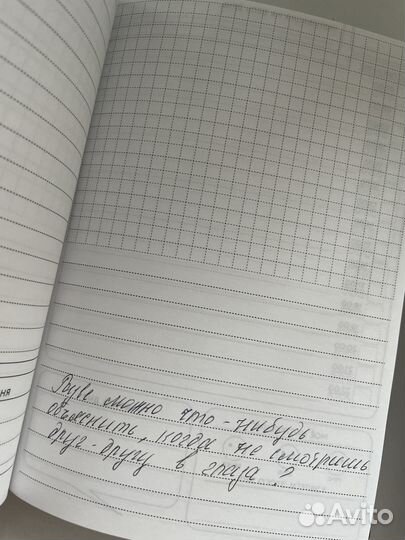 ня
Разве можно что-нибудь
объяснить, когда не смотришь
друг-другу в глаза?
Avito